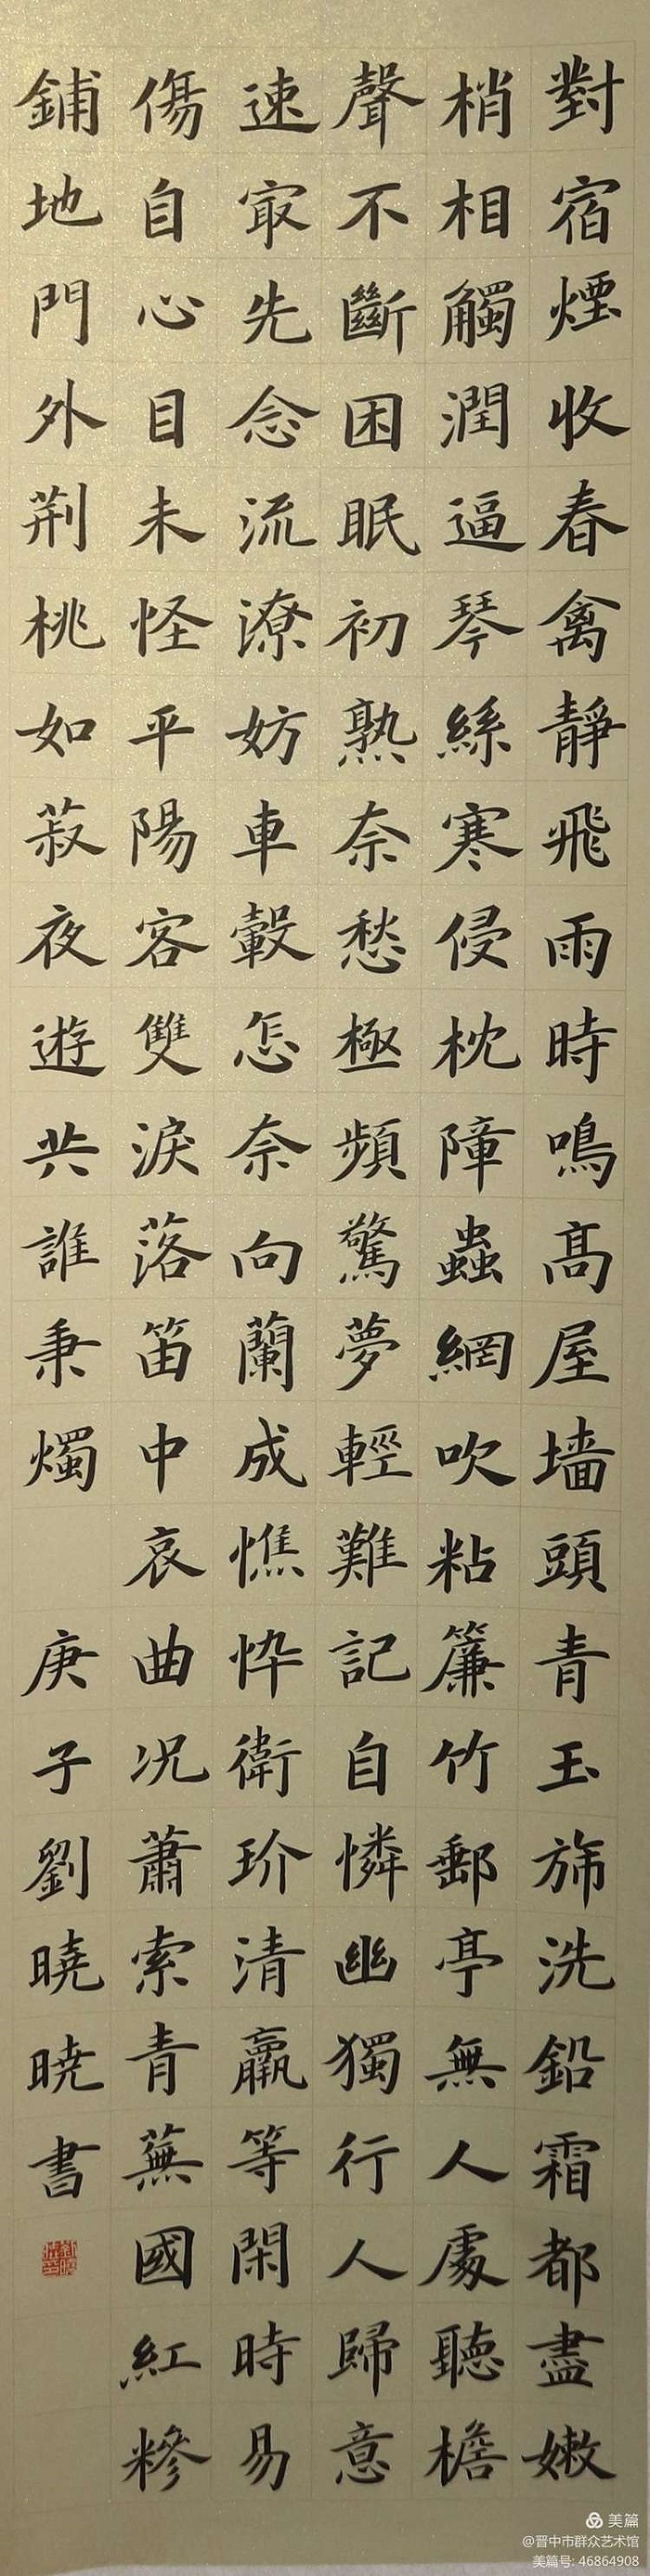 對宿煙收春禽靜飛雨時鳴髙屋墙頭青玉斾洗鉛霜都盡嫩
梢相觸潤逼琴絲寒侵枕障蟲網吹粘簾竹郵亭無人處聽檐
聲不斷困眠初熟奈愁極頻驚夢輕難記自憐幽獨行人歸意
速寂先念流潦妨車轂怎奈向蘭成憔忰衛玠清羸等閑時易
傷自心目未怪平陽客雙淚落笛中哀曲况蕭索青蕪國紅糝
鋪地門外荆桃如菽夜遊共誰秉燭
庚子劉曉曉書
美篇
@晋中市群众艺术馆
美篇号: 46864908